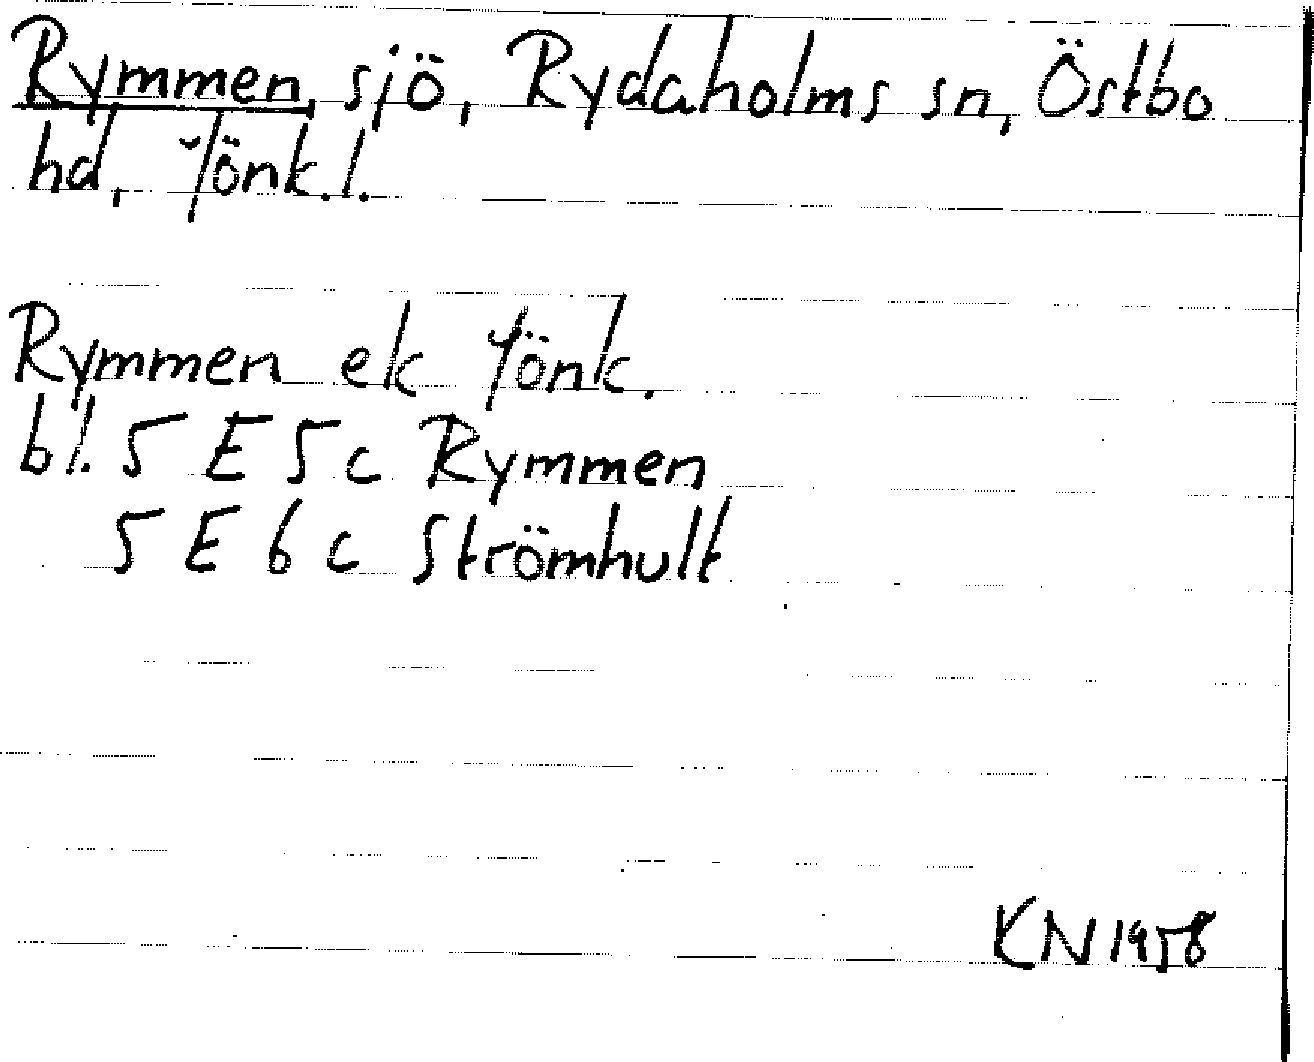 Rymmen, sjö, Rydaholms sn, Östbo
hd, Jönk.l.
Rymmen ek Jönk.
bl. 5 E 5 c Rymmen
5 E 6 c Strömhult
KN 1958